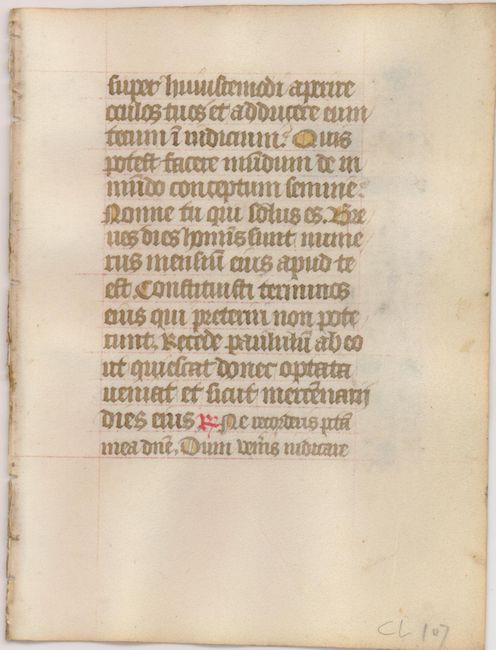 super huiuscemodi aperire
oculos tuos et adducere eum
tecum ī iudicium? Quis
potest facere mūdum de in
mūdo conceptum semine?
Nonne tu qui solus es. Bre
ues dies hominis sunt nume
rus mensiū eius apud te
est. Constituisti terminos
eius qui preteriri non pote
runt. Recede paululū ab eo
ut quiescat donec optata
ueniat et sicut mercennarii
dies eius ℟. Ne recorderis pctā
mea dnē. Dum veneris iudicare
CL 107